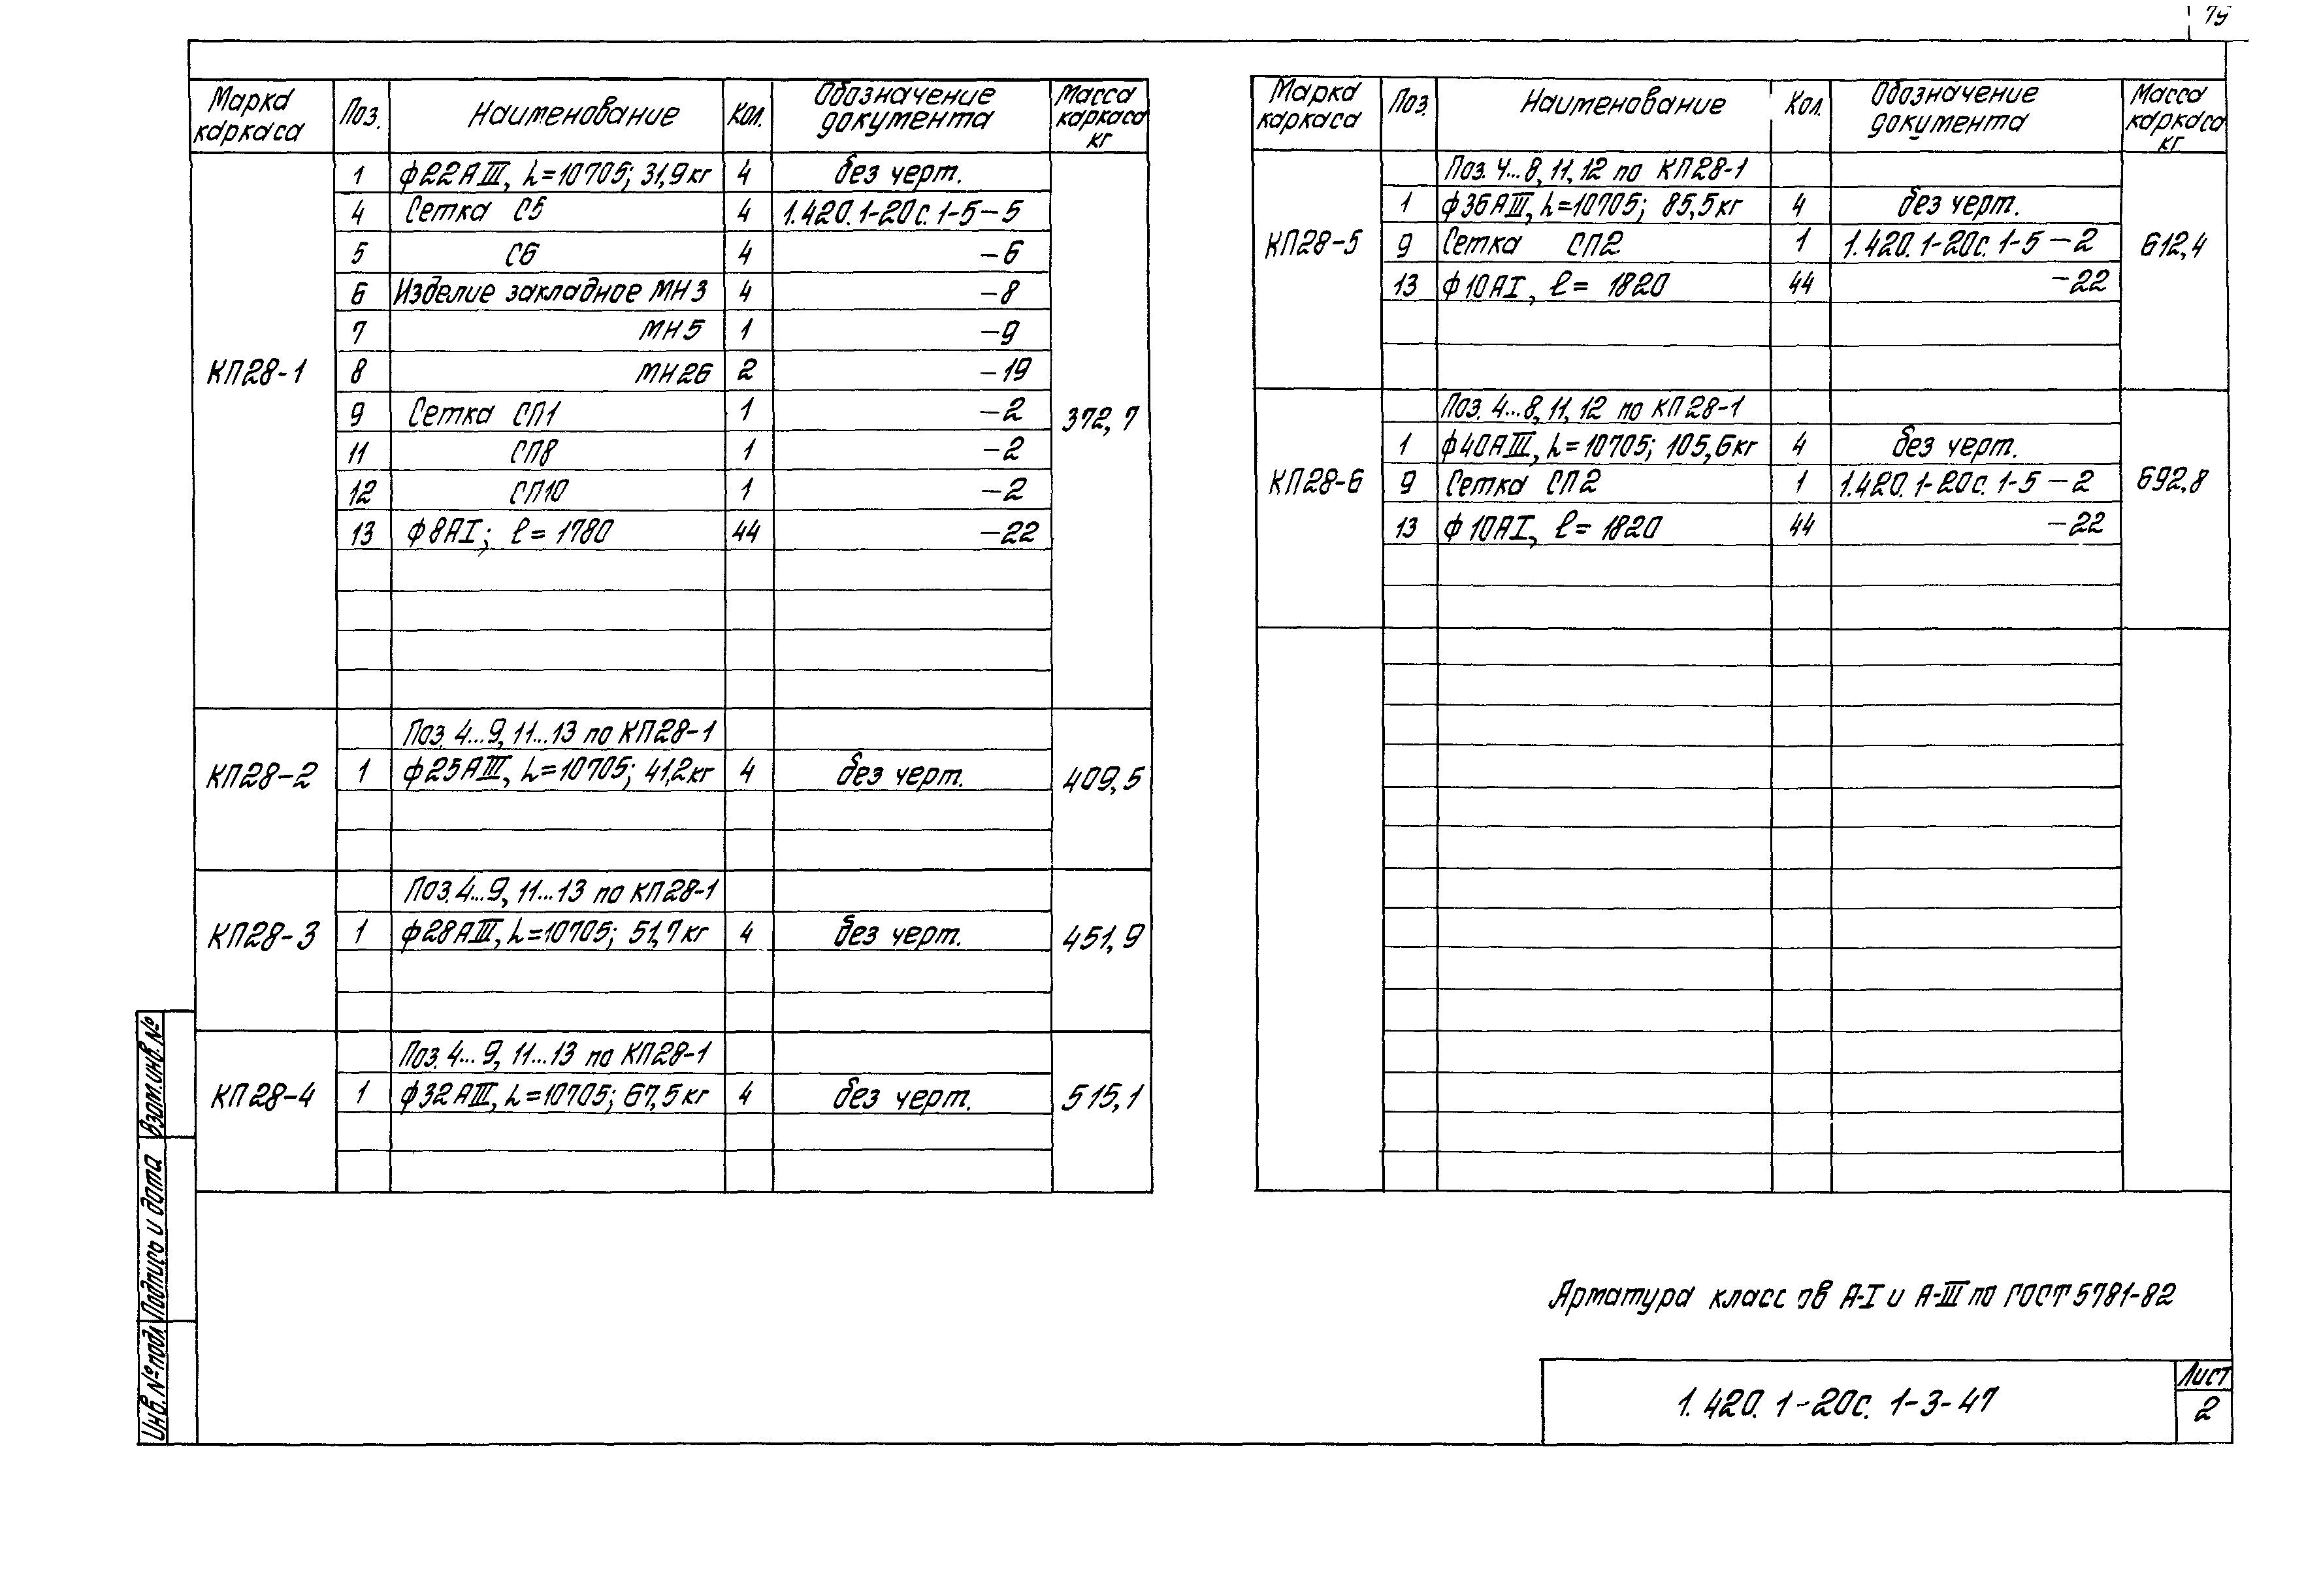 79
Марка каркаса Поз. Наименование Кол. Обозначение документа Масса каркаса кг
КП28-1 372,7
1 ф22АIII, L=10705; 31,9кг 4 без черт.
4 Сетка С5 4 1.420.1-20с.1-5-5
5 С6 4 -6
6 Изделие закладное МН3 4 -8
7 МН5 1 -9
8 МН26 2 -19
9 Сетка СП1 1 -2
11 СП8 1 -2
12 СП10 1 -2
13 ф8АI; ℓ= 1780 44 -22
КП28-2 409,5
Поз. 4...9, 11...13 по КП28-1
1 ф25АIII, L=10705; 41,2кг 4 без черт.
КП28-3 451,9
Поз. 4...9, 11...13 по КП28-1
1 ф28АIII, L=10705; 51,7кг 4 без черт.
КП28-4 515,1
Поз. 4...9, 11...13 по КП28-1
1 ф32АIII, L=10705; 67,5кг 4 без черт.
Марка каркаса Поз. Наименование Кол. Обозначение документа Масса каркаса кг
КП28-5 612,4
Поз. 4...8, 11, 12 по КП28-1
1 ф36АIII, L=10705; 85,5кг 4 без черт.
9 Сетка СП2 1 1.420.1-20с.1-5-2
13 ф10АI, ℓ= 1820 44 -22
КП28-6 692,8
Поз. 4...8, 11, 12 по КП28-1
1 ф40АIII, L=10705; 105,6кг 4 без черт.
9 Сетка СП2 1 1.420.1-20с.1-5-2
13 ф10АI, ℓ= 1820 44 -22
Арматура классов А-I и А-III по ГОСТ 5781-82
1.420.1-20с. 1-3-47
Лист
2
Взам.инв.№
Подпись и дата
Инв.№подл